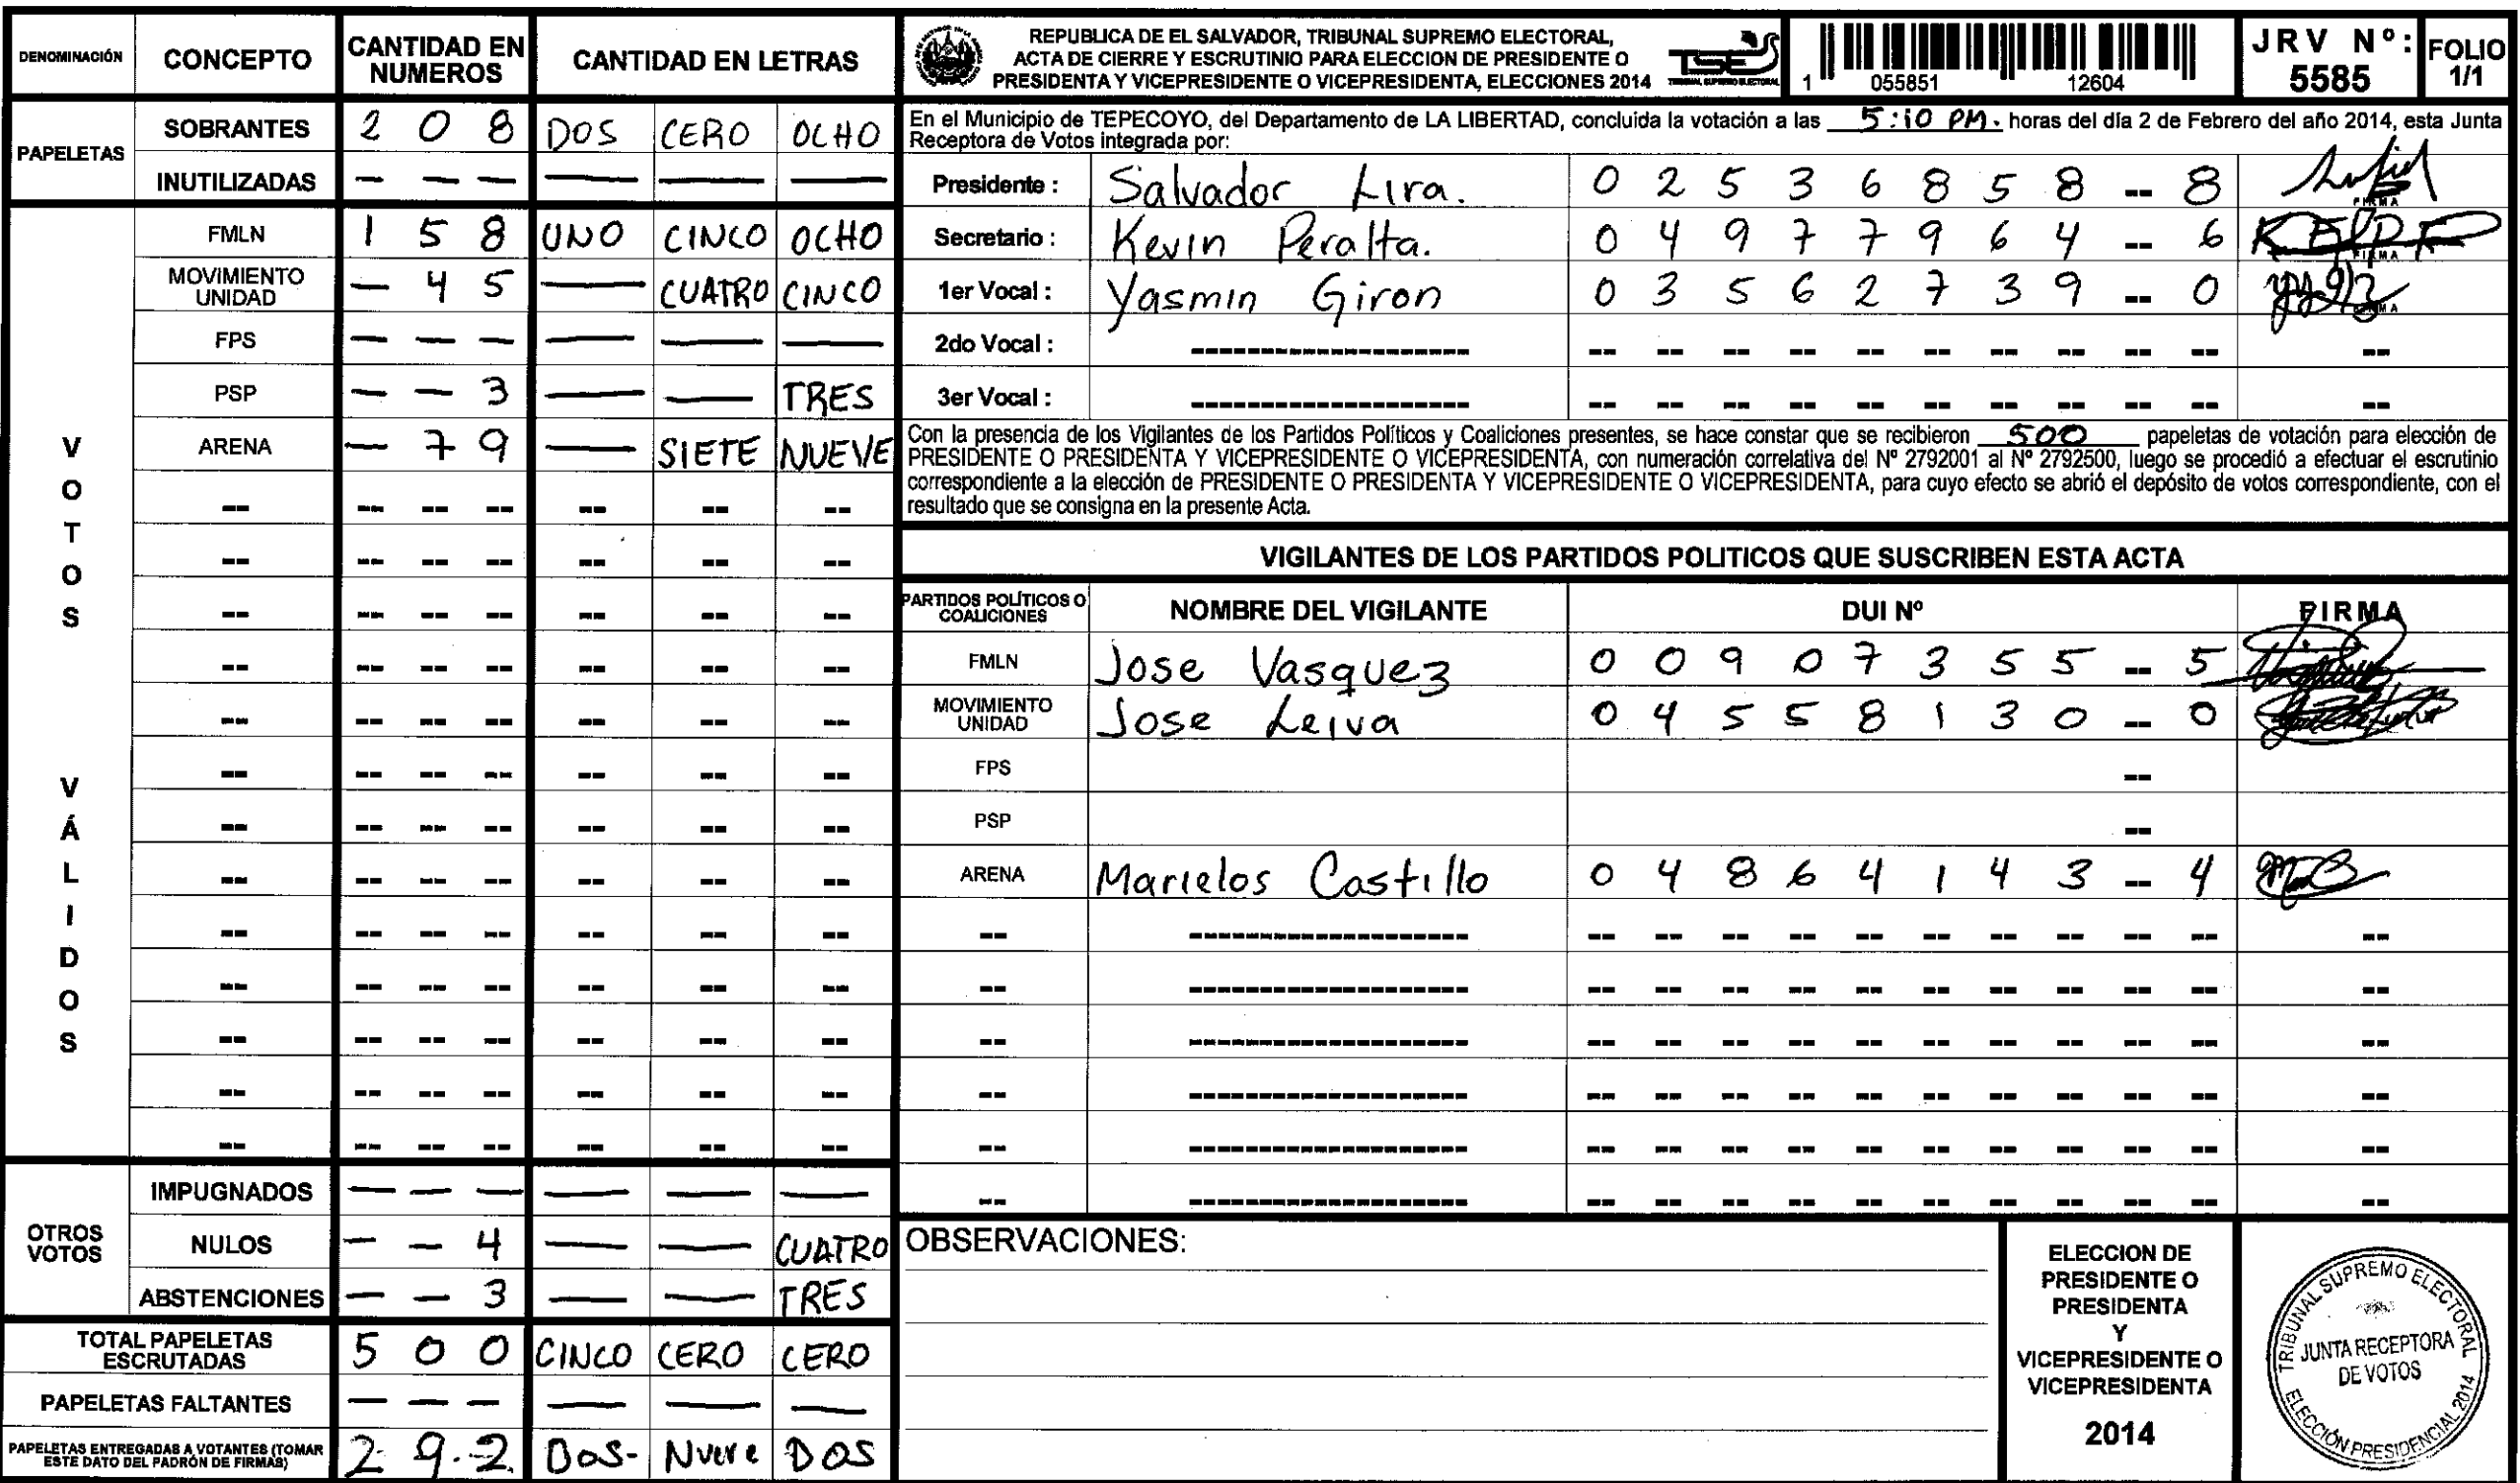 DENOMINACIÓN CONCEPTO CANTIDAD EN NUMEROS CANTIDAD EN LETRAS
PAPELETAS
SOBRANTES 2 0 8 DOS CERO OCHO
INUTILIZADAS — — — — — —
VOTOS VÁLIDOS
FMLN 1 5 8 UNO CINCO OCHO
MOVIMIENTO UNIDAD — 4 5 — CUATRO CINCO
FPS — — — — — —
PSP — — 3 — — TRES
ARENA — 7 9 — SIETE NUEVE
-- -- -- -- -- -- --
-- -- -- -- -- -- --
-- -- -- -- -- -- --
-- -- -- -- -- -- --
-- -- -- -- -- -- --
-- -- -- -- -- -- --
-- -- -- -- -- -- --
-- -- -- -- -- -- --
-- -- -- -- -- -- --
-- -- -- -- -- -- --
-- -- -- -- -- -- --
-- -- -- -- -- -- --
-- -- -- -- -- -- --
OTROS VOTOS
IMPUGNADOS — — — — — —
NULOS — — 4 — — CUATRO
ABSTENCIONES — — 3 — — TRES
TOTAL PAPELETAS ESCRUTADAS 5 0 0 CINCO CERO CERO
PAPELETAS FALTANTES — — — — — —
PAPELETAS ENTREGADAS A VOTANTES (TOMAR ESTE DATO DEL PADRÓN DE FIRMAS) 2 9.2 DOS- Nueve DOS
REPUBLICA DE EL SALVADOR, TRIBUNAL SUPREMO ELECTORAL,
ACTA DE CIERRE Y ESCRUTINIO PARA ELECCION DE PRESIDENTE O
PRESIDENTA Y VICEPRESIDENTE O VICEPRESIDENTA, ELECCIONES 2014
TSE
TRIBUNAL SUPREMO ELECTORAL
1 055851 12604
JRV Nº: 5585
FOLIO 1/1
En el Municipio de TEPECOYO, del Departamento de LA LIBERTAD, concluida la votación a las 5:10 PM. horas del día 2 de Febrero del año 2014, esta Junta
Receptora de Votos integrada por:
Presidente : Salvador Lira. 0 2 5 3 6 8 5 8 -- 8 FIRMA
Secretario : Kevin Peralta. 0 4 9 7 7 9 6 4 -- 6 FIRMA
1er Vocal : Yasmin Giron 0 3 5 6 2 7 3 9 -- 0 FIRMA
2do Vocal : -------------------- -- -- -- -- -- -- -- -- -- -- --
3er Vocal : -------------------- -- -- -- -- -- -- -- -- -- -- --
Con la presencia de los Vigilantes de los Partidos Políticos y Coaliciones presentes, se hace constar que se recibieron 500 papeletas de votación para elección de
PRESIDENTE O PRESIDENTA Y VICEPRESIDENTE O VICEPRESIDENTA, con numeración correlativa del Nº 2792001 al Nº 2792500, luego se procedió a efectuar el escrutinio
correspondiente a la elección de PRESIDENTE O PRESIDENTA Y VICEPRESIDENTE O VICEPRESIDENTA, para cuyo efecto se abrió el depósito de votos correspondiente, con el
resultado que se consigna en la presente Acta.
VIGILANTES DE LOS PARTIDOS POLITICOS QUE SUSCRIBEN ESTA ACTA
PARTIDOS POLÍTICOS O COALICIONES NOMBRE DEL VIGILANTE DUI Nº FIRMA
FMLN Jose Vasquez 0 0 9 0 7 3 5 5 -- 5
MOVIMIENTO UNIDAD Jose Leiva 0 4 5 5 8 1 3 0 -- 0
FPS --
PSP --
ARENA Marielos Castillo 0 4 8 6 4 1 4 3 -- 4
-- -------------------- -- -- -- -- -- -- -- -- -- -- --
-- -------------------- -- -- -- -- -- -- -- -- -- -- --
-- -------------------- -- -- -- -- -- -- -- -- -- -- --
-- -------------------- -- -- -- -- -- -- -- -- -- -- --
-- -------------------- -- -- -- -- -- -- -- -- -- -- --
-- -------------------- -- -- -- -- -- -- -- -- -- -- --
OBSERVACIONES:
ELECCION DE
PRESIDENTE O
PRESIDENTA
Y
VICEPRESIDENTE O
VICEPRESIDENTA
2014
TRIBUNAL SUPREMO ELECTORAL
JUNTA RECEPTORA
DE VOTOS
ELECCIÓN PRESIDENCIAL 2014